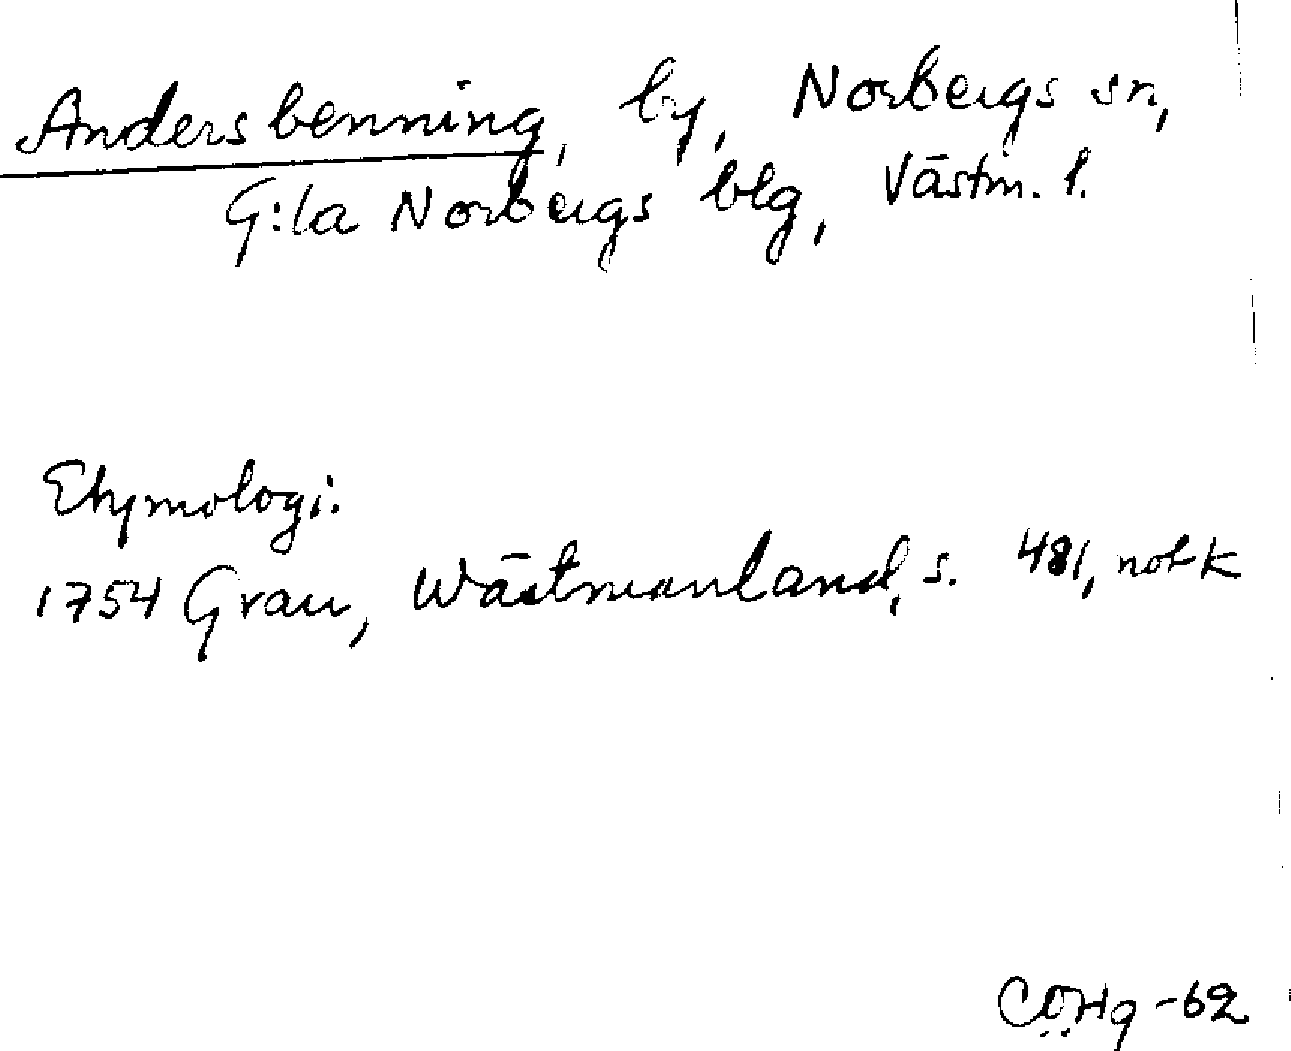 Andersbenning, by, Norbergs sn,
G:la Norbergs blg, Västm. l.
Etymologi:
1754 Grau, Wästmanland, s. 481, not k
CÖHg -62